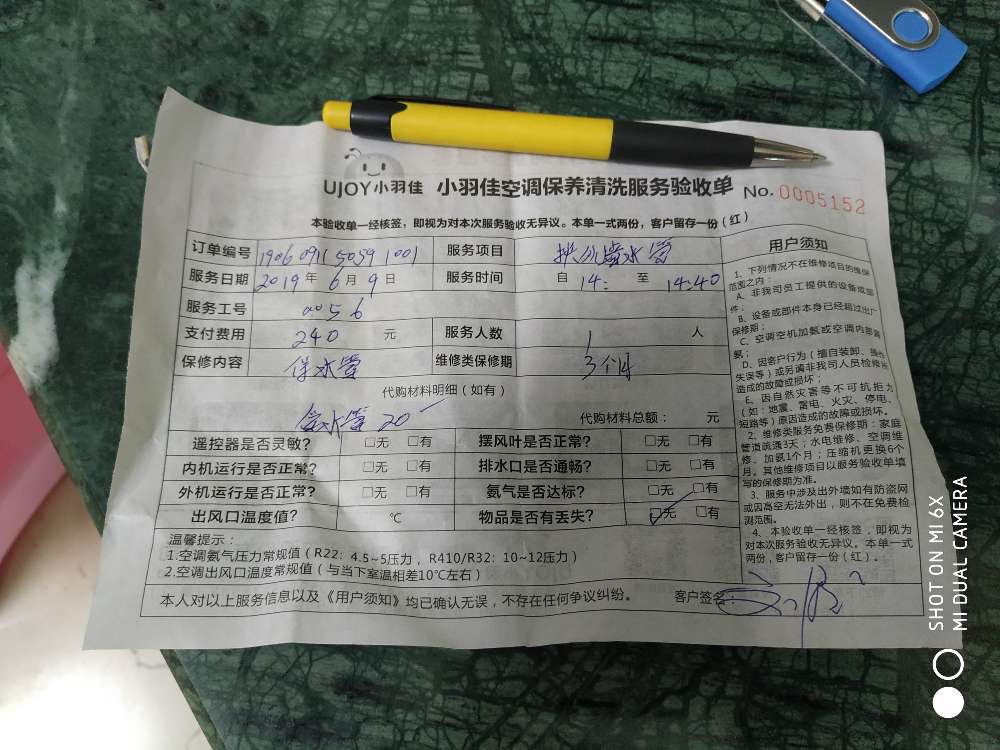 UJOY小羽佳 小羽佳空调保养清洗服务验收单 No. 0005152
本验收单一经核签，即视为对本次服务验收无异议。本单一式两份，客户留存一份（红）
订单编号 1906091150591001 服务项目 水管
服务日期 2019年6月9日 服务时间 自 14: 至 14:40
服务工号 0056
支付费用 240 元 服务人数 1 人
保修内容 保水管 维修类保修期 3个月
代购材料明细（如有）
水管 20
代购材料总额： 元
遥控器是否灵敏？ □无 □有 摆风叶是否正常？ □无 □有
内机运行是否正常？ □无 □有 排水口是否通畅？ □无 □有
外机运行是否正常？ □无 □有 氨气是否达标？ □无 □有
出风口温度值？ ℃ 物品是否有丢失？ ☑无 □有
温馨提示：
1.空调氨气压力常规值（R22：4.5~5压力，R410/R32：10~12压力）
2.空调出风口温度常规值（与当下室温相差10℃左右）
本人对以上服务信息以及《用户须知》均已确认无误，不存在任何争议纠纷。 客户签名：
用户须知
1、下列情况不在维修项目的维保
范围之内：
A、非我司员工提供的设备或部
件；
B、设备或部件本身已经超过出厂
保修期；
C、空调空机加氨或空调内部漏
氨；
D、因客户行为（擅自装卸、操作
失误等）或另请非我司人员检修所
造成的故障或损坏；
E、因自然灾害等不可抗拒力
（如：地震、雷电、火灾、停电、
短路等）原因造成的故障或损坏。
2、维修类服务免费保修期：家庭
管道疏通3天；水电维修、空调维
修、加氨1个月；压缩机更换6个
月。其他维修项目以服务验收单填
写的保修期为准。
3、服务中涉及出外墙如有防盗网
或因高空无法外出，则不在免费检
测范围。
4、本验收单一经核签，即视为
对本次服务验收无异议。本单一式
两份，客户留存一份（红）。
SHOT ON MI 6X
MI DUAL CAMERA